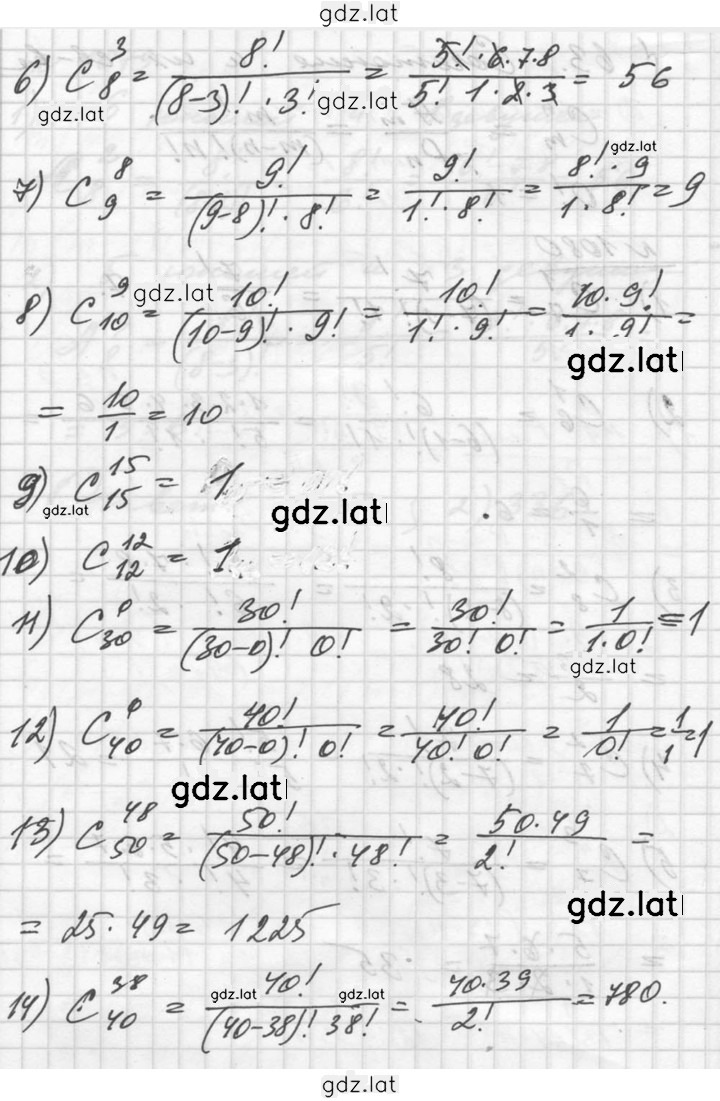 gdz.lat
6) C₈³ = 8! / ((8-3)! · 3!) = 5! · 6 · 7 · 8 / (5! 1 · 2 · 3) = 56
gdz.lat
gdz.lat
gdz.lat
7) C₉⁸ = 9! / ((9-8)! · 8!) = 9! / (1! · 8!) = 8! · 9 / (1 · 8!) = 9
gdz.lat
8) C₁₀⁹ = 10! / ((10-9)! · 9!) = 10! / (1! · 9!) = 10 · 9! / (1 · 9!) =
gdz.lat
= 10 / 1 = 10
9) C₁₅¹⁵ = 1
gdz.lat
gdz.lat
10) C₁₂¹² = 1
11) C₃₀⁰ = 30! / ((30-0)! 0!) = 30! / (30! 0!) = 1 / (1 · 0!) = 1
gdz.lat
12) C₄₀⁰ = 40! / ((40-0)! 0!) = 40! / (40! 0!) = 1 / 0! = 1 / 1 = 1
gdz.lat
13) C₅₀⁴⁸ = 50! / ((50-48)! · 48!) = 50 · 49 / 2! =
gdz.lat
= 25 · 49 = 1225
14) C₄₀³⁸ = 40! / ((40-38)! 38!) = 40 · 39 / 2! = 780.
gdz.lat
gdz.lat
gdz.lat